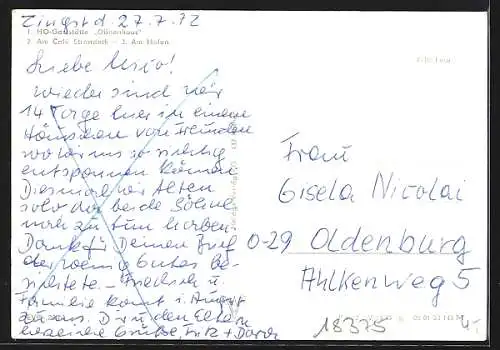 Zingst d. 27.7.72
1. HO-Gaststätte „Dünenhaus"
2. Am Café Strandeck – 3. Am Hafen
Liebe
wieder sind wir
14 Tage hier in einem
Häuschen von Freunden
wo wir uns so richtig
entspannen können
Diesmal wir Alten
solo da beide Söhne
noch zu tun haben
Dank für Deinen Brief
der wenig Gutes be-
richtete. –
Familie kommt i. August
Dir u. den Eltern
Grüße, Fritz + Dora
Frau
Gisela Nicolai
0-29 Oldenburg
Ahlkenweg 5
18375
4,-